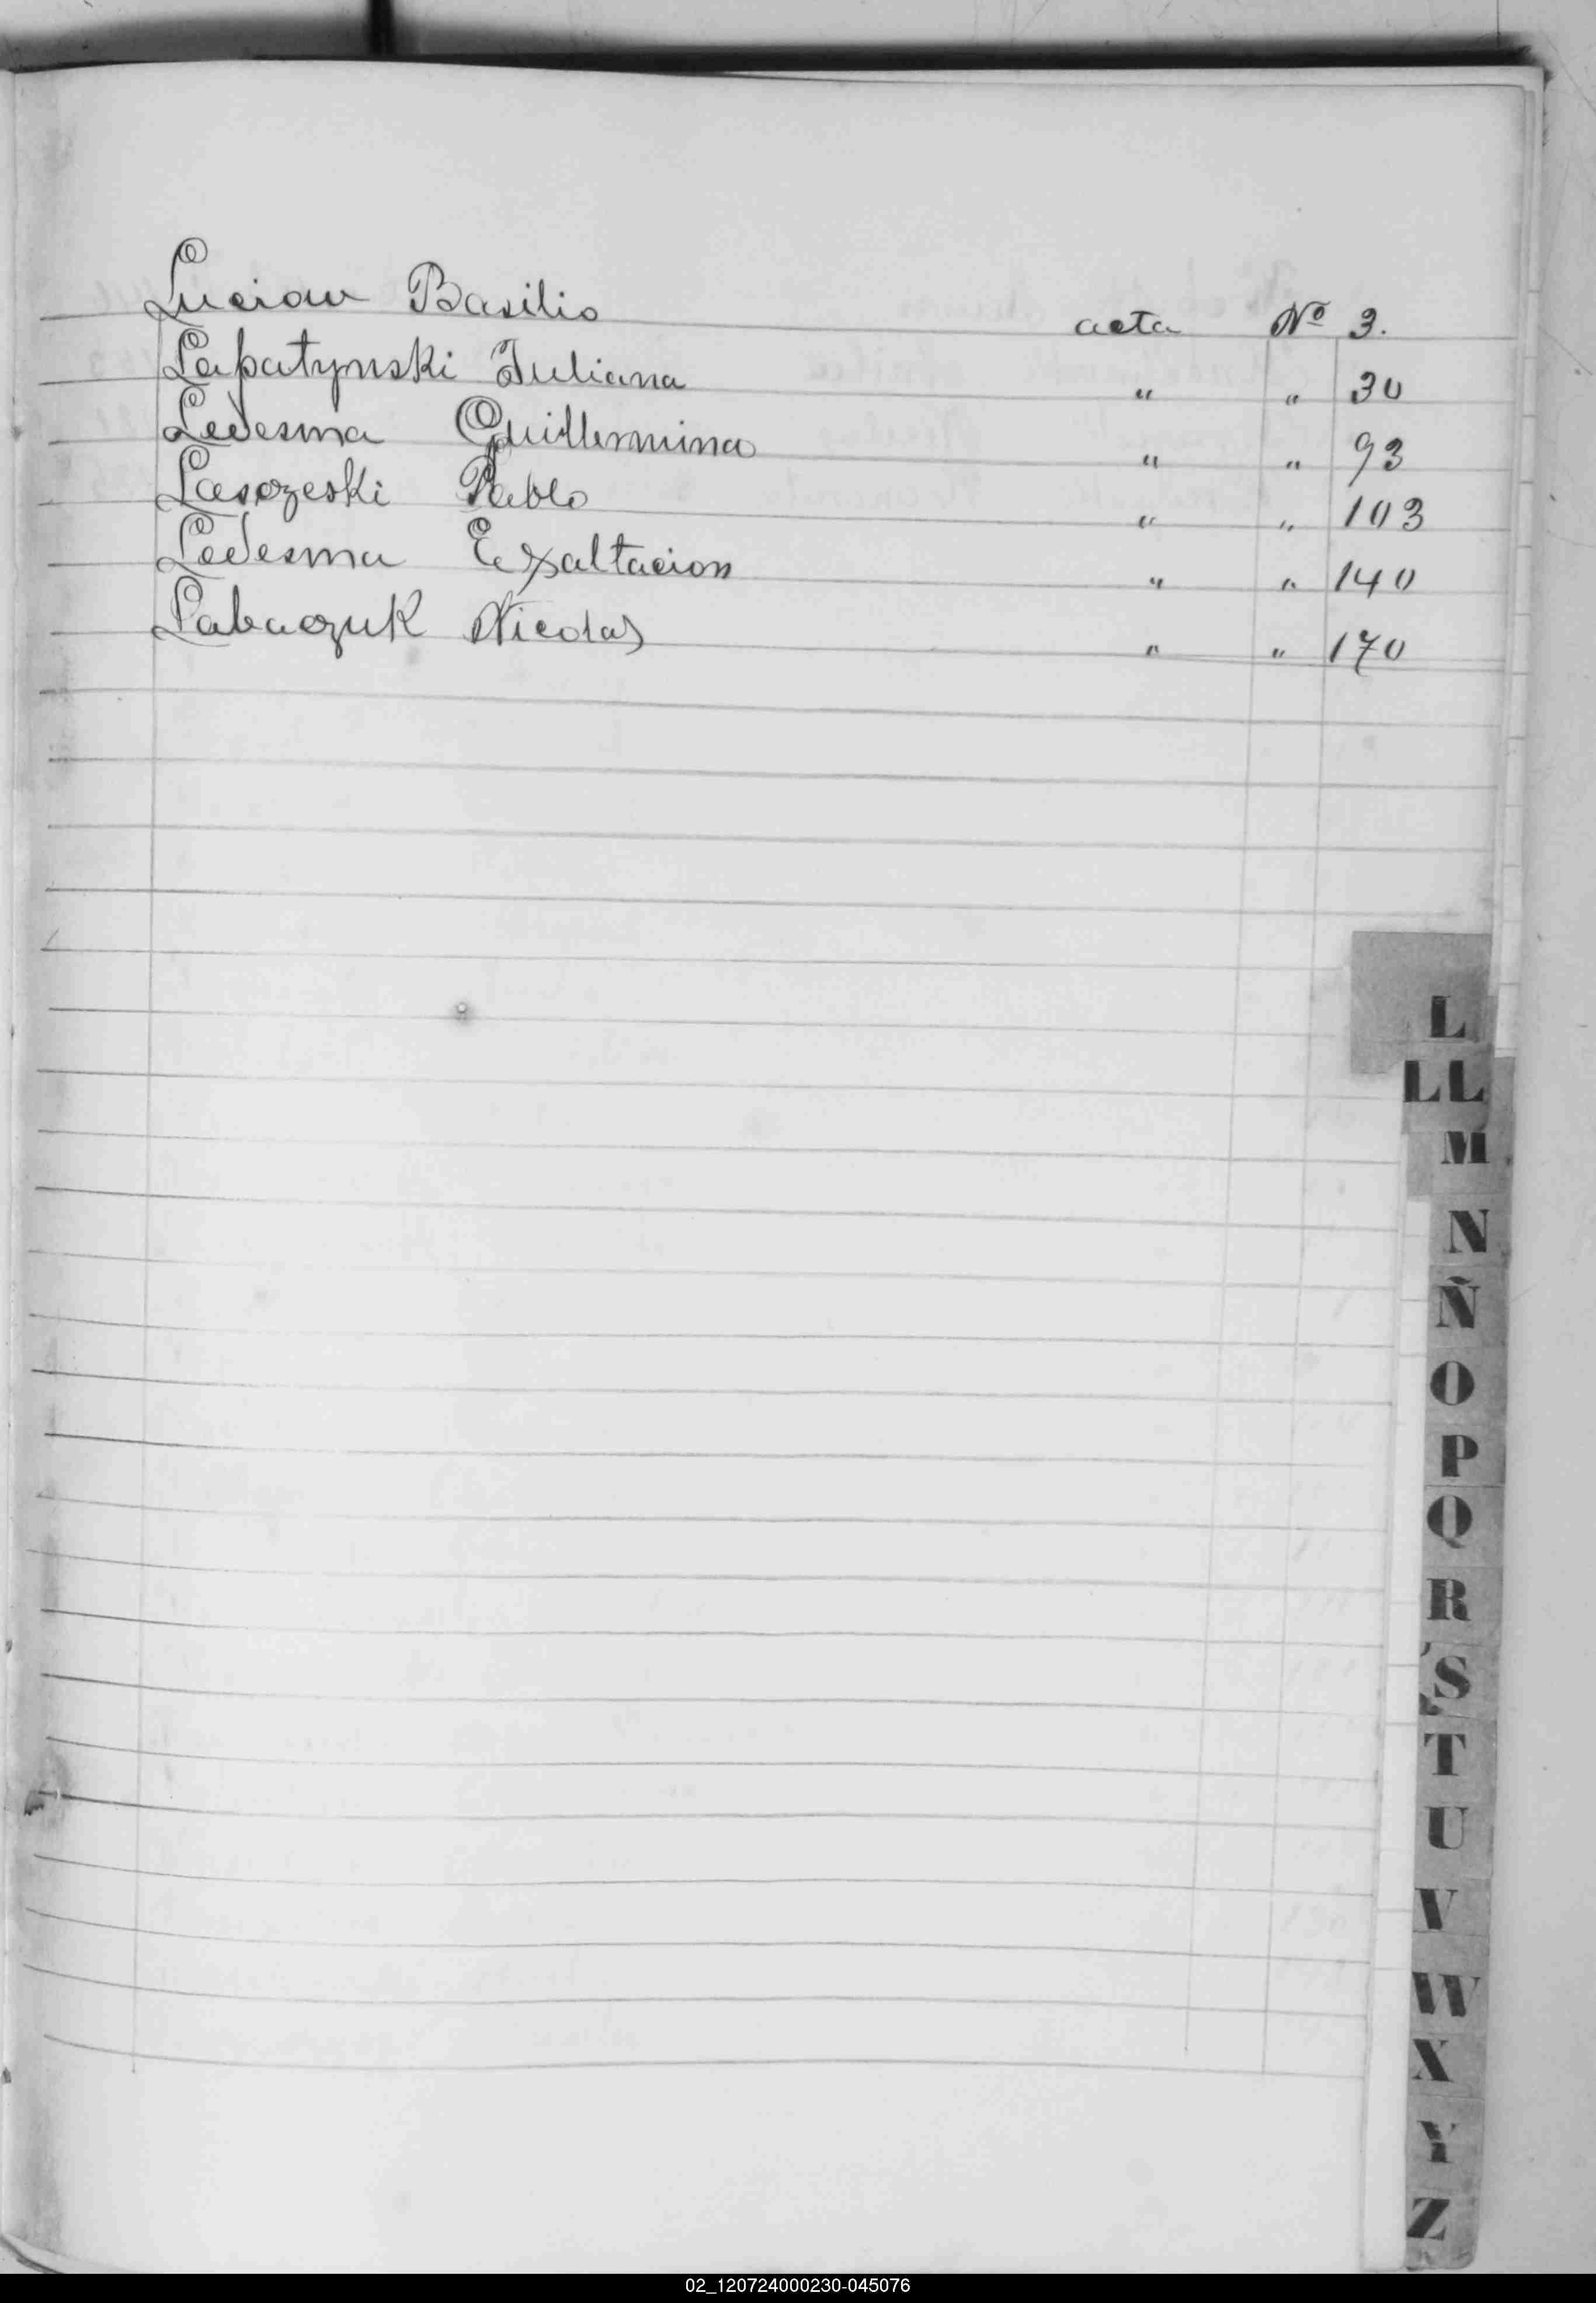 Luciow Basilio acta Nº 3.
Lapatynski Juliana " " 30
Ledesma Guillermina " " 93
Lasozeski Pablo " " 103
Ledesma Exaltacion " " 140
Labaczuk Nicolas " " 170
L
LL
M
N
Ñ
O
P
Q
R
S
T
U
V
W
X
Y
Z
02_120724000230-045076